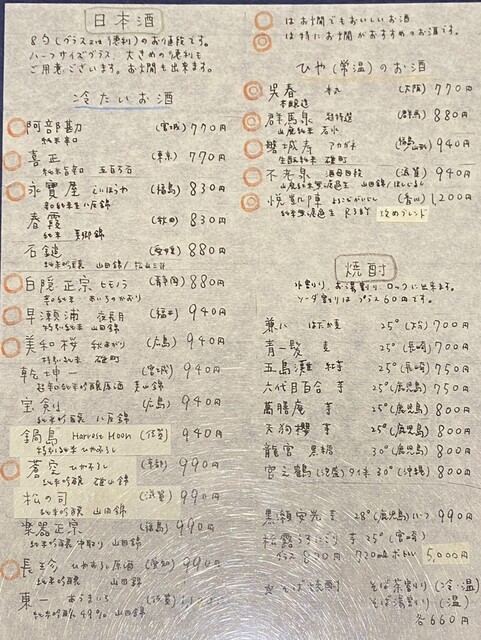 日本酒
8勺(グラス又は徳利)のお値段です。
ハーフサイズグラス、大きめの徳利も
ご用意ございます。お燗も出来ます。
冷たいお酒
阿部勘 (宮城) 770円
純米辛口
喜正 (東京) 770円
純米吟醸 五百石
永寶屋 (福島) 830円
純米 八反錦
春霞 (秋田) 830円
純米 美郷錦
石鎚 (愛媛) 880円
純米吟醸 山田錦/松山三井
白隠正宗 (静岡) 880円
あいちのかおり
早瀬浦 夜長月 (福井) 940円
特別純米 山田錦
美和桜 秋あがり (広島) 940円
特別純米 雄町
乾坤一 (宮城) 940円
純米吟醸原酒 美山錦
宝剣 (広島) 940円
純米吟醸 八反錦
鍋島 Harvest Moon (佐賀) 940円
特別純米 ひやおろし
蒼空 ひやおろし (京都) 990円
純米吟醸
松の司 (滋賀) 990円
純米吟醸 山田錦
楽器正宗 (福島) 990円
純米吟醸 中取り 山田錦
長珍 ひやおろし 原酒 (愛知) 990円
純米吟醸 山田錦
東一 (佐賀)
純米吟醸 49% 山田錦
はお燗でもおいしいお酒
は特にお燗がおすすめのお酒です。
ひや(常温)のお酒
呉春 (大阪) 770円
本醸造
群馬泉 超特選 (群馬) 880円
山廃純米
磐城寿 アカガネ 940円
生酛純米 雄町
不老泉 (滋賀) 940円
悦凱陣 よろこびがいじん (香川) 1,200円
純米無濾過生 R3BY 攻めブレンド
焼酎
水割り、お湯割り、ロックに出来ます。
ソーダ割りはプラス60円です。
兼八 はだか麦 25° (大分) 700円
青一髪 麦 25° (長崎) 700円
五島灘 紅芋 25° (長崎) 750円
六代目百合 芋 25° (鹿児島) 750円
萬膳庵 芋 25° (鹿児島) 800円
天狗櫻 芋 25° (鹿児島) 800円
龍宮 黒糖 30° (鹿児島) 800円
宮之鶴 (泡盛) タイ米 30° (沖縄) 800円
黒瀬安光 芋 28° (鹿児島) 990円
松露うすにごり 芋 25° (宮崎)
グラス 830円 720mlボトル 5,000円
そば焼酎 そば茶割り (冷・温)
そば湯割り (温)
各660円